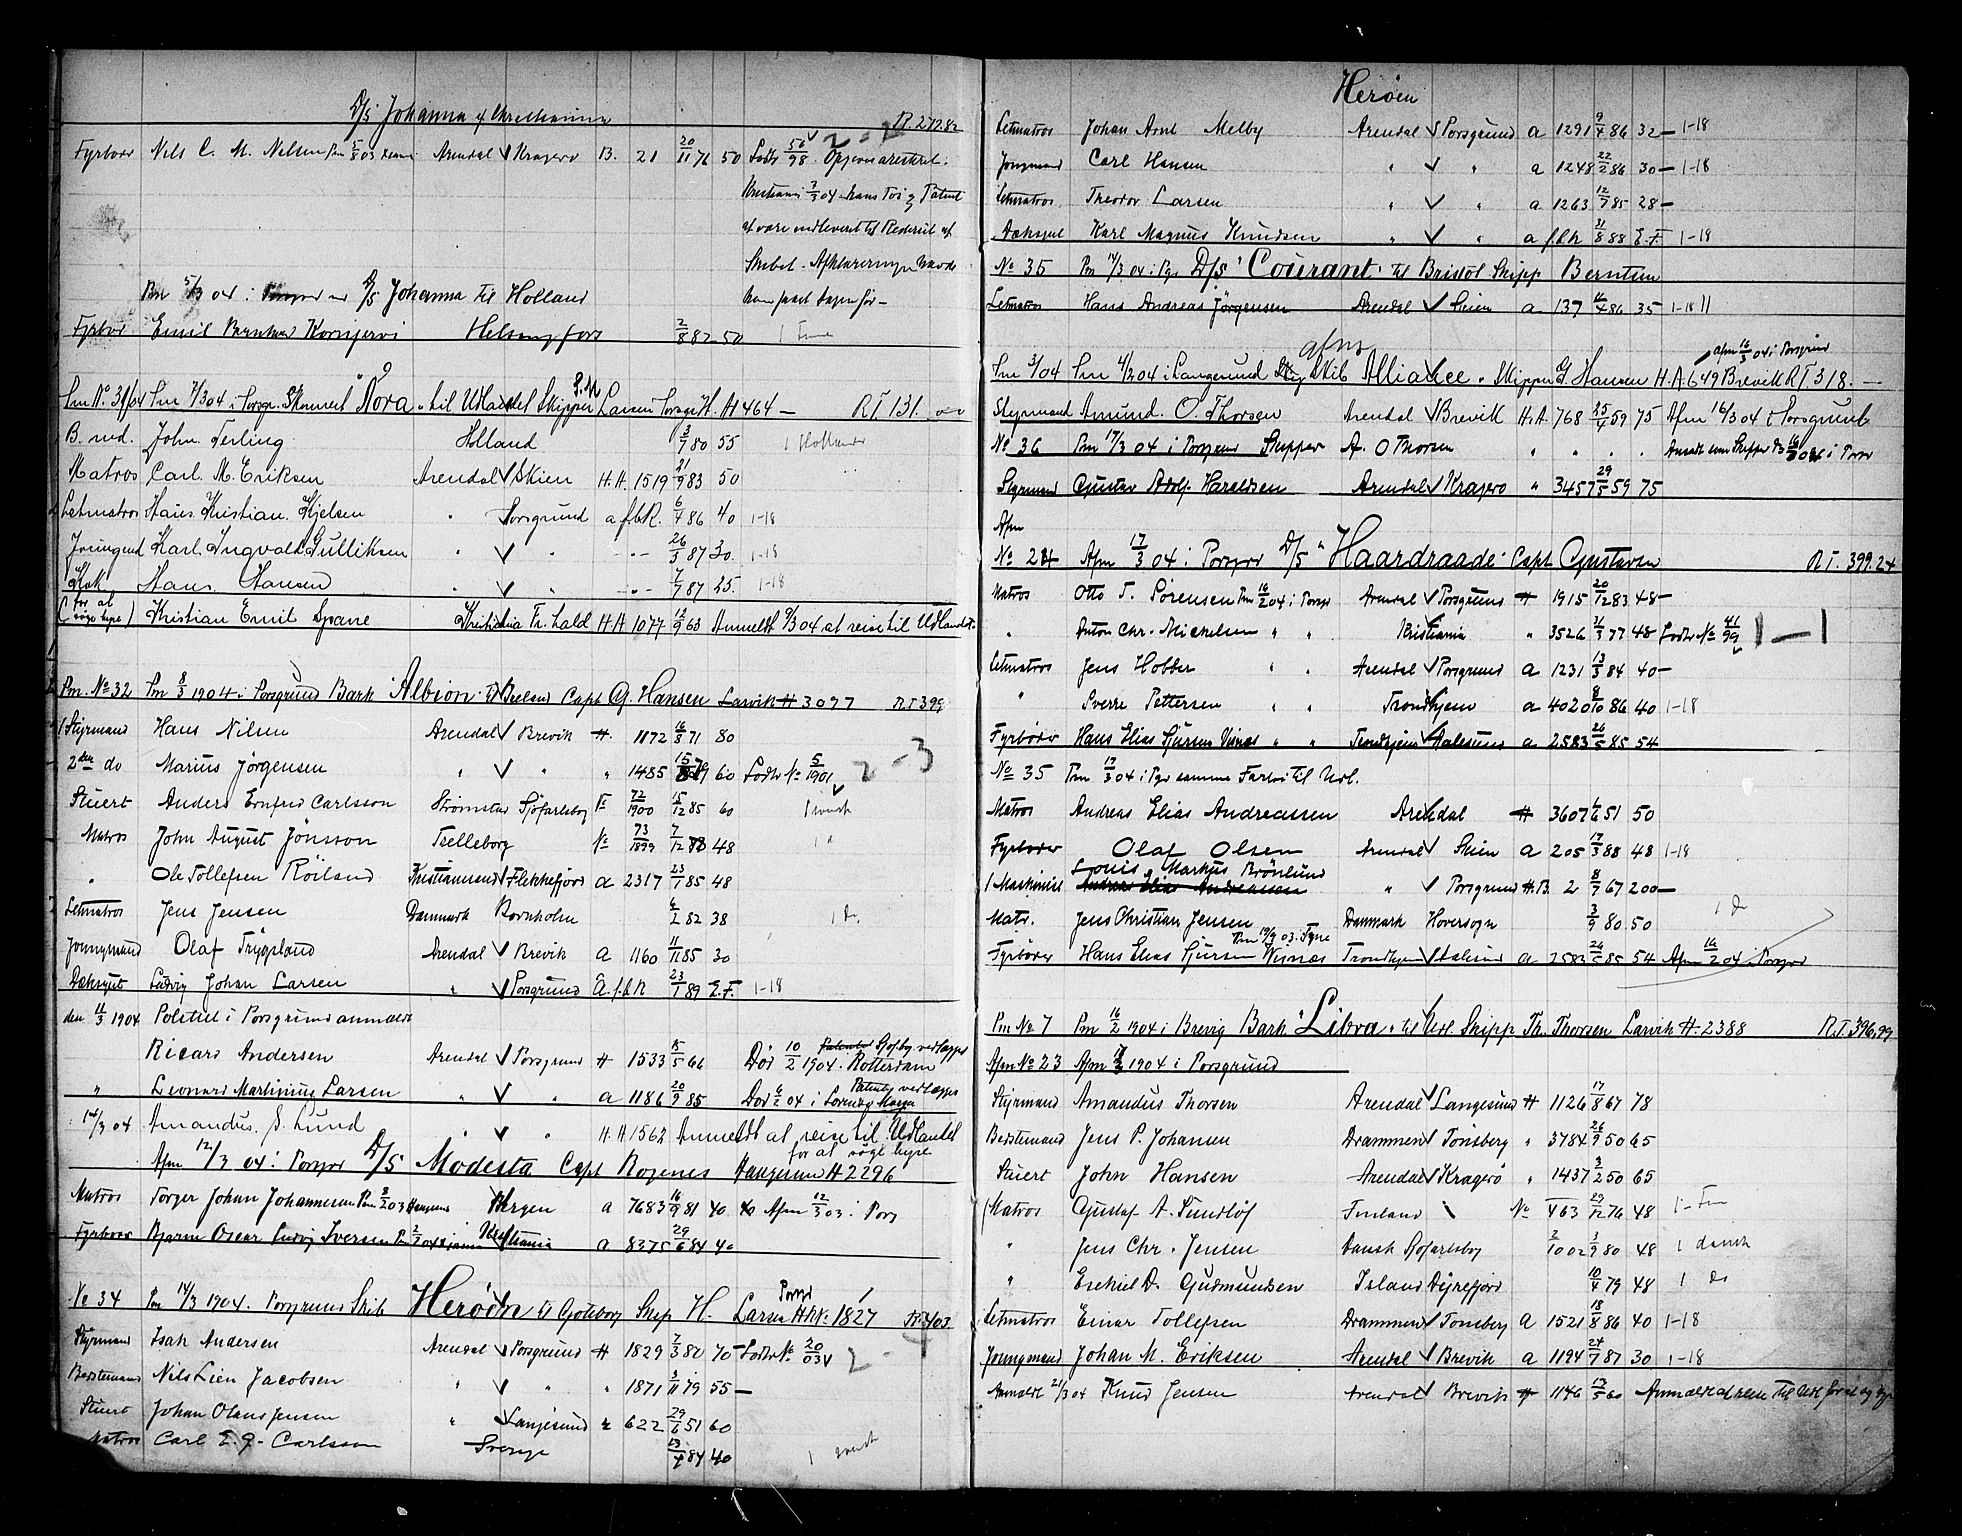 D/S Johanna af Christiania R.T. 272.82
Fyrbøder Nils C. M. Nelsen Pm 5/8 03 Arendal Kragerø B. 21 20/11 76 50 Lodts 56/98
Kristiania 7/3 04 hans Tøi og Patent
at være indleveret til Rederiet af
havde
Pm 5/3 04 i D/S Johanna til Holland
Fyrbød Emil Helsingfors 2/8 82 50
Pm No. 31/04 Pm 7/3 04 i Porsgr. Skonnert "Nora" til Udlandet Skipper S. M. Larsen Porsgr. H. A 464 — R T 131.
B. md. John Terling Holland 3/7 80 55
Matros Carl. M. Eriksen Arendal Skien H. A. 1519 21/9 83 50
Letmatros Hans Kristian. Kjelsen " Porsgrund a f.b.R. 6/4 86 40 1-18
Jungmand Karl. Ingvald Gulliksen " " 26/5 87 30. 1-18
Kok Hans Hansen " " 7/7 87 25. 1-18
(for at søge hyre) Kristian Emil Spane Kristiania Fr. hald H A 1077 12/9 63 Anmeldt 9/3 04 at reise til Udlandet
Pm. No 32 Pm 8/3 1904 i Porsgrund Bark Albion til Capt G. Hansen Larvik H 3097 R T 399
1 Styrmand Hans Nilsen Arendal Brevik H. 1172 16/8 71 80
2den do Marius Jörgensen " " " 1485 60 Lodts No 5/1901 2-3
Stuert Anders Ernfred Carlsson Strømstad Sjöfartsbog No 72/1900 15/12 85 60
Matros John August Jönsson Trelleborg No 73/1899 7/12 48
" Ole Tollefsen Röiland Kristiansand Flekkefjord a 2317 23/1 85 48
Letmatros Jens Jensen Danmark Bornholm 6/2 82 38 1 D.
Jungmand Olaf Trygsland Arendal Brevik a 1160 11/11 85 30
Dæksgut Ludvig Johan Larsen " Porsgrund a. f. b R 23/1 89 E.F. 1-18
den 11/3 1904 Politiet i Porsgrund anmeldt
Ricard Andersen Arendal Porsgrund H 1533 15/5 66 Död 10/2 1904. Rotterdam
" Leonard Martinius Larsen " " a 1186 20/9 85 Död 6/2 04 i Lorenzo Marga Patent vedlægges
14/3 04 Amandus. S. Lund " " H. A 1562 Anmeldt at reise til Udlandet for at søge hyre
Afm 12/3 04 i Porsgr D/S Modesta Capt Rogenes Haugesund H 2296
Matros Torger Johan Johannesen Pm 03 Bergen a 7683 16/9 81 40 Afm 12/3 03 i Pors
Fyrbøder Bjarne Oscar Ludvig Iversen Kristiania a 8375 29/6 84 40
No 34 Pm 14/3 1904. Porsgrund Skib Herøen til Gøteborg Skip H. Larsen Porsgr 1827 R T 403
Styrmand Isak Andersen Arendal Porsgrund H 1829 7/3 80 70 Lodts No. 20/03 2-4
Bestemand Nils Lien Jacobsen " " " 1871 3/11 79 55 —
Stuert Johan Olaus Jensen " Langesund " 622 29/6 51 60
Matros Carl E. G. Carlsson Sverige 23/4 84 40
Herøen
Letmatros Johan Arnt Melby Arendal Porsgrund a 1291 9/4 86 32 — 1-18
Jungmand Carl Hansen " " a 1248 22/2 86 30 — 1-18
Letmatros Theodor Larsen " " a 1263 12/7 85 28 —
Dæksgut Karl Magnus Knudsen " " a f.b.R 31/8 88 E.F. 1-18
No 35 Pm 14/3 04 i Pgr D/S "Courant" til Bristol Skipp Berntsen
Letmatros Hans Andreas Jörgensen Arendal Skien a 137 16/4 86 35 1-18
Pm 3/04 Pm 4/2 04 i Langesund Skib Alliance. Skipper G. Hansen H. A. 649 Brevik R T 318. — afm 16/3 04 i Porsgrund
Styrmand Amund. O. Thorsen Arendal Brevik H. A. 768 25/4 59 75 Afm 16/3 04 i Porsgrund
No 36 Pm 17/3 04 i Porsgrund Skipper A. O Thorsen " " " " Ansat som Skipper i Porsgr
Styrmand Gustav Adolf Haraldsen Arendal Kragerø " 3457 29/5 59 75
Afm
No 24 Afm 17/3 04 i Porsgr D/S "Haardraade" Capt Gustavsen R T. 399.24
Matros Otto T. Sörensen Pm 16/2 04 i Porsgr Arendal Porsgrund H 1915 20/12 83 48 —
" Anton Chr. Mickelsen " " Kristiania " 3526 31/3 77 48 Lodts No 41/99 1—1
Letmatros Jens Holter " " Arendal Porsgrund a 1231 13/3 84 40 —
" Sverre Pettersen " " Trondhjem a 4020 8/10 86 40 1-18
Fyrbøder Hans Elias Sjursen Visnæs " " Trondhjem Aalesund a 2583 26/5 85 54
No 35 Pm 17/3 04 i Pgr samme Fartøi til Udl.
Matros Andreas Elias Andreassen Arendal H 3607 1/6 51 50
Fyrbøder Olaf Olsen Arendal Skien a 205 17/3 88 48 1-18
1 Maskinist Louis Markus Brönlund " Porsgrund H.B. 2 8/7 67 200 —
Matr. Jens Christian Jensen Danmark Hoversogn 3/9 80 50 1 D
Fyrbøder Hans Elias Sjursen Visnæs Trondhjem Aalesund a 2583 26/5 85 54 Afm 16/2 04 i Porsgr
Pm No 7 Pm 16/2 1904 i Brevig Bark "Libra" til Udl. Skipp Th. Thorsen Larvik H. 2388 R.T. 396,99
Afm No 23 Afm 1904 i Porsgrund
Styrmand Amandus Thorsen Arendal Langesund H 1126 17/8 67 78
Bestemand Jens P. Johansen Drammen Tönsberg " 3784 26/9 50 65
Stuert John Hansen Arendal Kragerö " 1437 9/2 50 65
Matros Gustaf A. Sundlöf Finland No 463 29/12 76 48 1 - Fin
" Jens Chr. Jensen Dansk Sjöfartsbog 2/1002 3/9 80 48 1 dansk
" Esekiel D. Gudmundsen Island Dyrefjord 10/4 79 48 1 do
Letmatros Einar Tollefsen Drammen Tønsberg a 1521 18/8 86 40 1-18
Jungmand Johan M. Eriksen Arendal Brevik a 1194 24/7 87 30 1-18
Anmeldt 21/3 04 Knud Jensen Arendal Brevik H 1146 13/5 60 Anmeldt at reise til Udl for at søge hyre